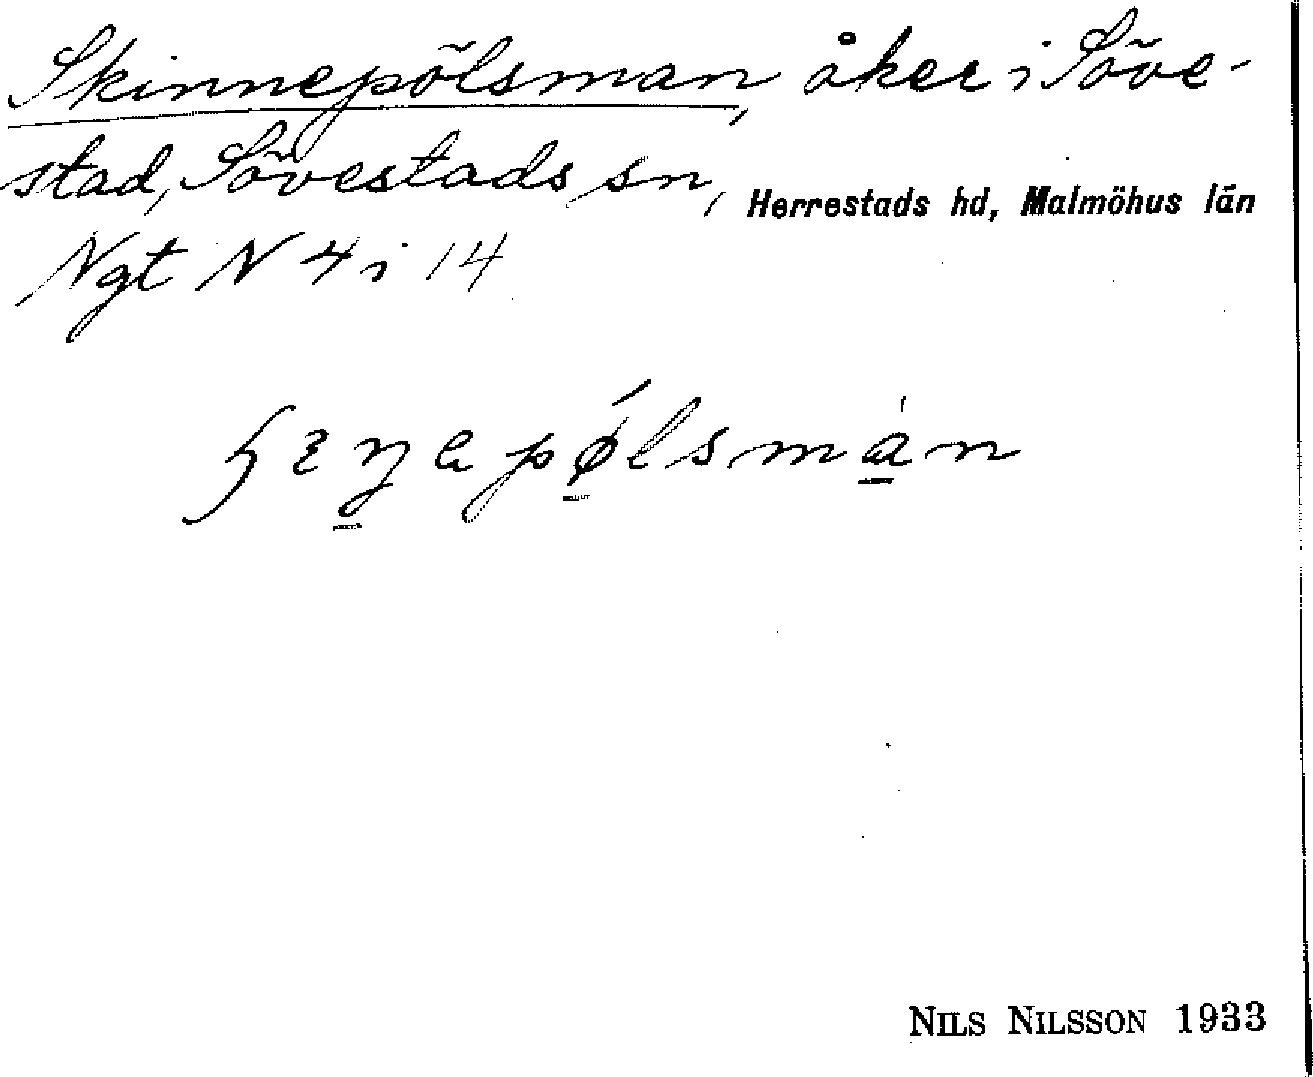 Skinnepölsman, åker i Söve-
stad, Sövestads sn, Herrestads hd, Malmöhus län
Ngt N 4 i 14
NILS NILSSON 1933